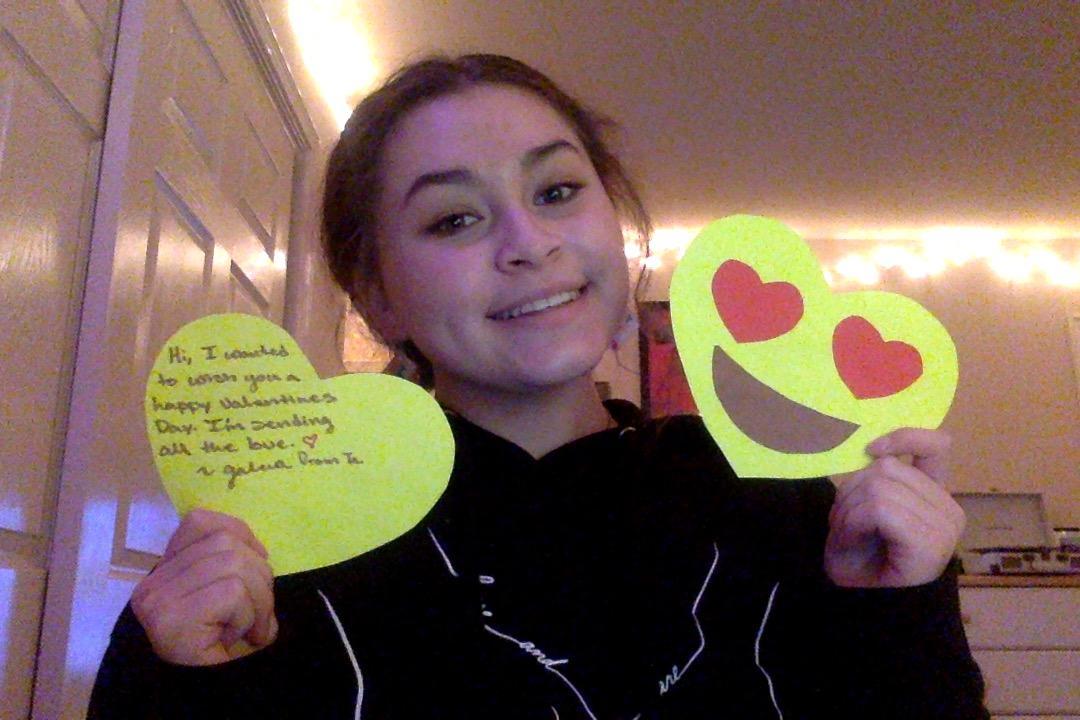 Hi, I wanted
to wish you a
happy Valentines
Day. I'm sending
all the love. ♡
from
and